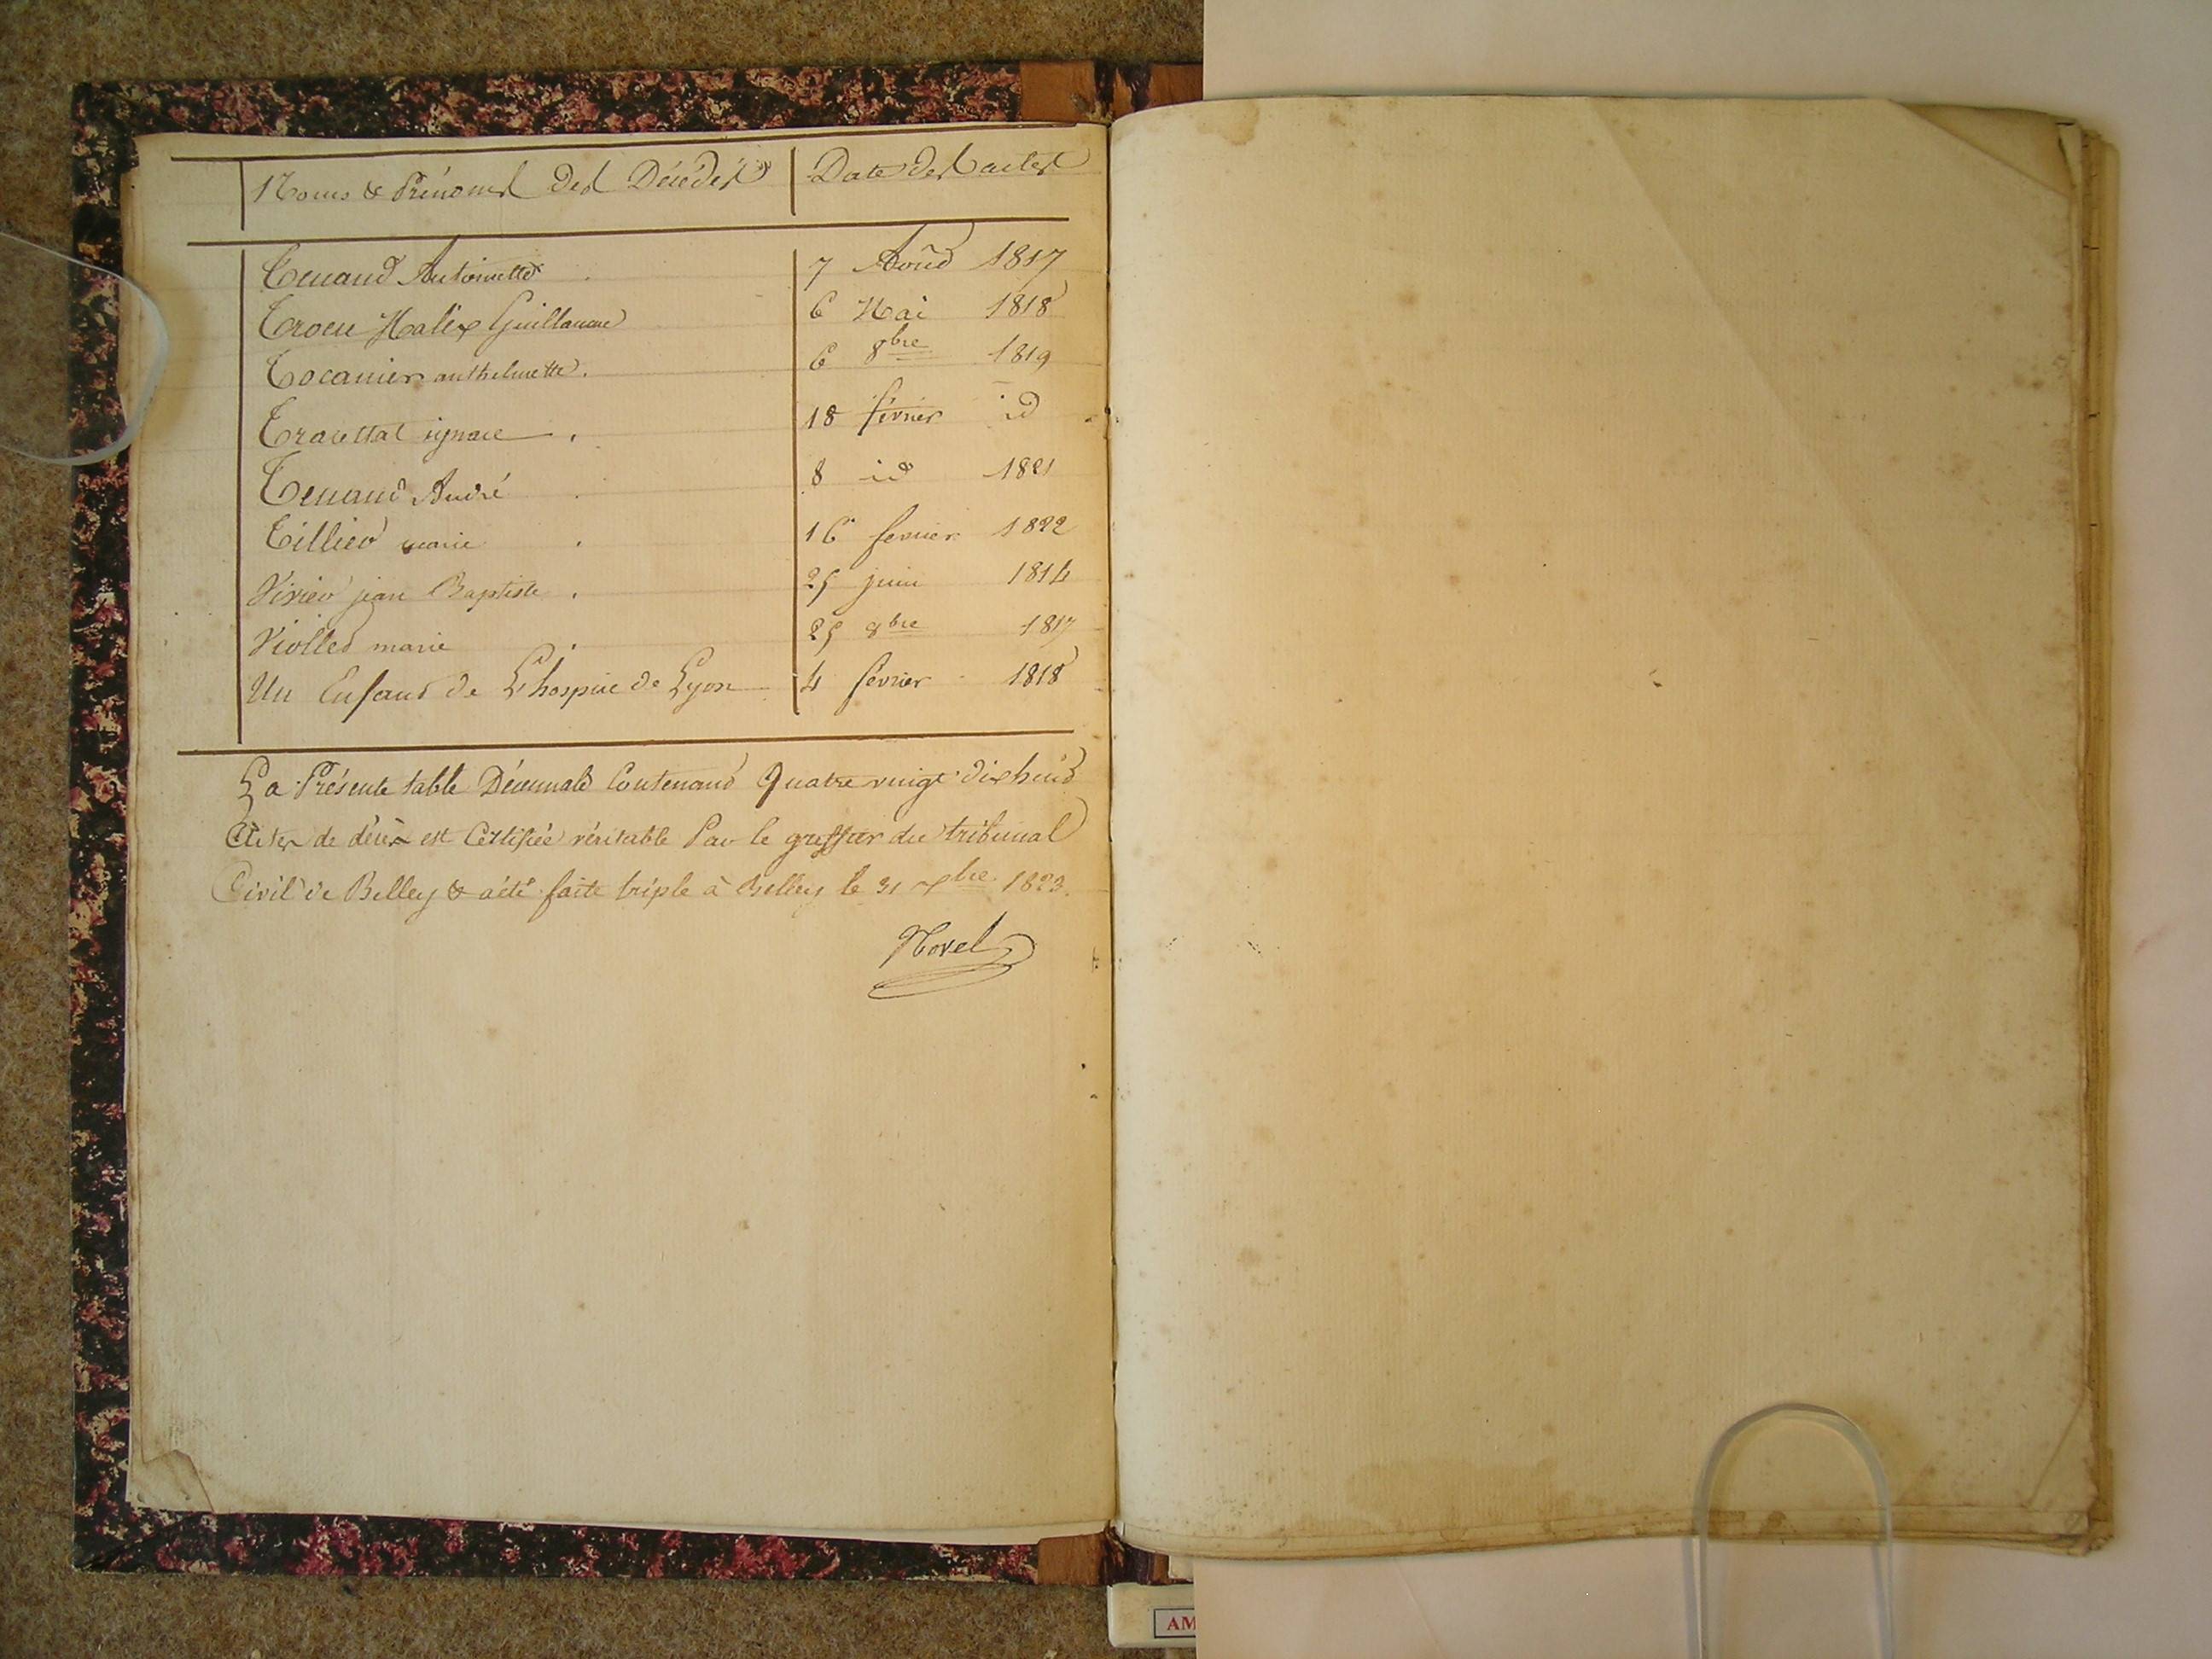 Noms & Prénoms des Décédés Date des actes
Tenand Antoinette 7 Août 1817
Guillaume 6 Mai 1818
Tocanier anthelmette 6 8bre 1819
ignace 18 février id
Tenand André 8 id 1821
Tilliet marie 16 fevrier 1822
jean Baptiste 25 juin 1814
Viollet marie 25 8bre 1817
Un Enfant de L'hospice de Lyon 4 février 1818
La Présente table Décennale Contenant Quatre vingt dixhuit
Actes de décès est Certifiée véritable Par le greffier du tribunal
Civil de Belley & a été faite triple à Belley le 31 Xbre 1823.
Novel
AM